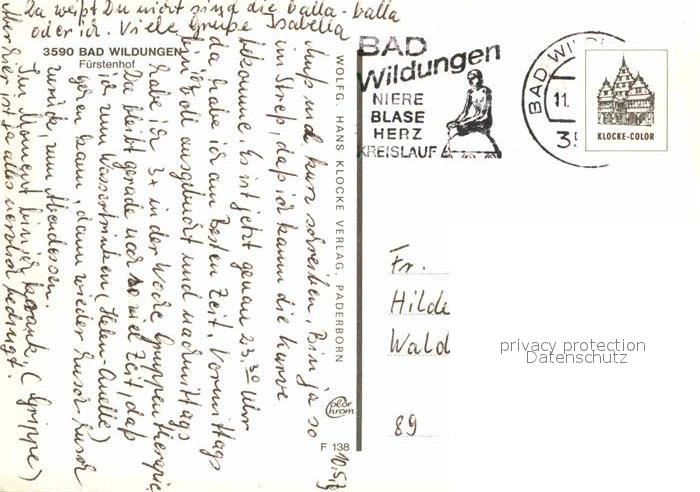 3590 BAD WILDUNGEN
Fürstenhof
WOLFG. HANS KLOCKE VERLAG, PADERBORN
color
chrom
F 138
10.5.
Muß mich kurz schreiben. Bin ja so
im Streß, daß ich kaum die Kurve
bekomme. Es ist jetzt genau 23.30 Uhr
da habe ich am besten Zeit. Vormittags
bin ich voll ausgebucht und nachmittags
habe ich 3x in der Woche Gruppentherapie
Da bleibt gerade noch so viel Zeit, daß
ich zum Wassertrinken (Helenen-Quelle)
gehen kann, dann wieder husch husch
zurück, zum Abendessen.
Im Moment bin ich krank, (Grippe)
Aber hier ist ja alles nervlich bedingt.
Da weißt Du nicht sind die balla-balla
oder ich. Viele Grüße Isabella
BAD
Wildungen
NIERE
BLASE
HERZ
KREISLAUF
BAD WIL
11.
35
KLOCKE-COLOR
Fr.
Hilde
Wald
89
privacy protection
Datenschutz